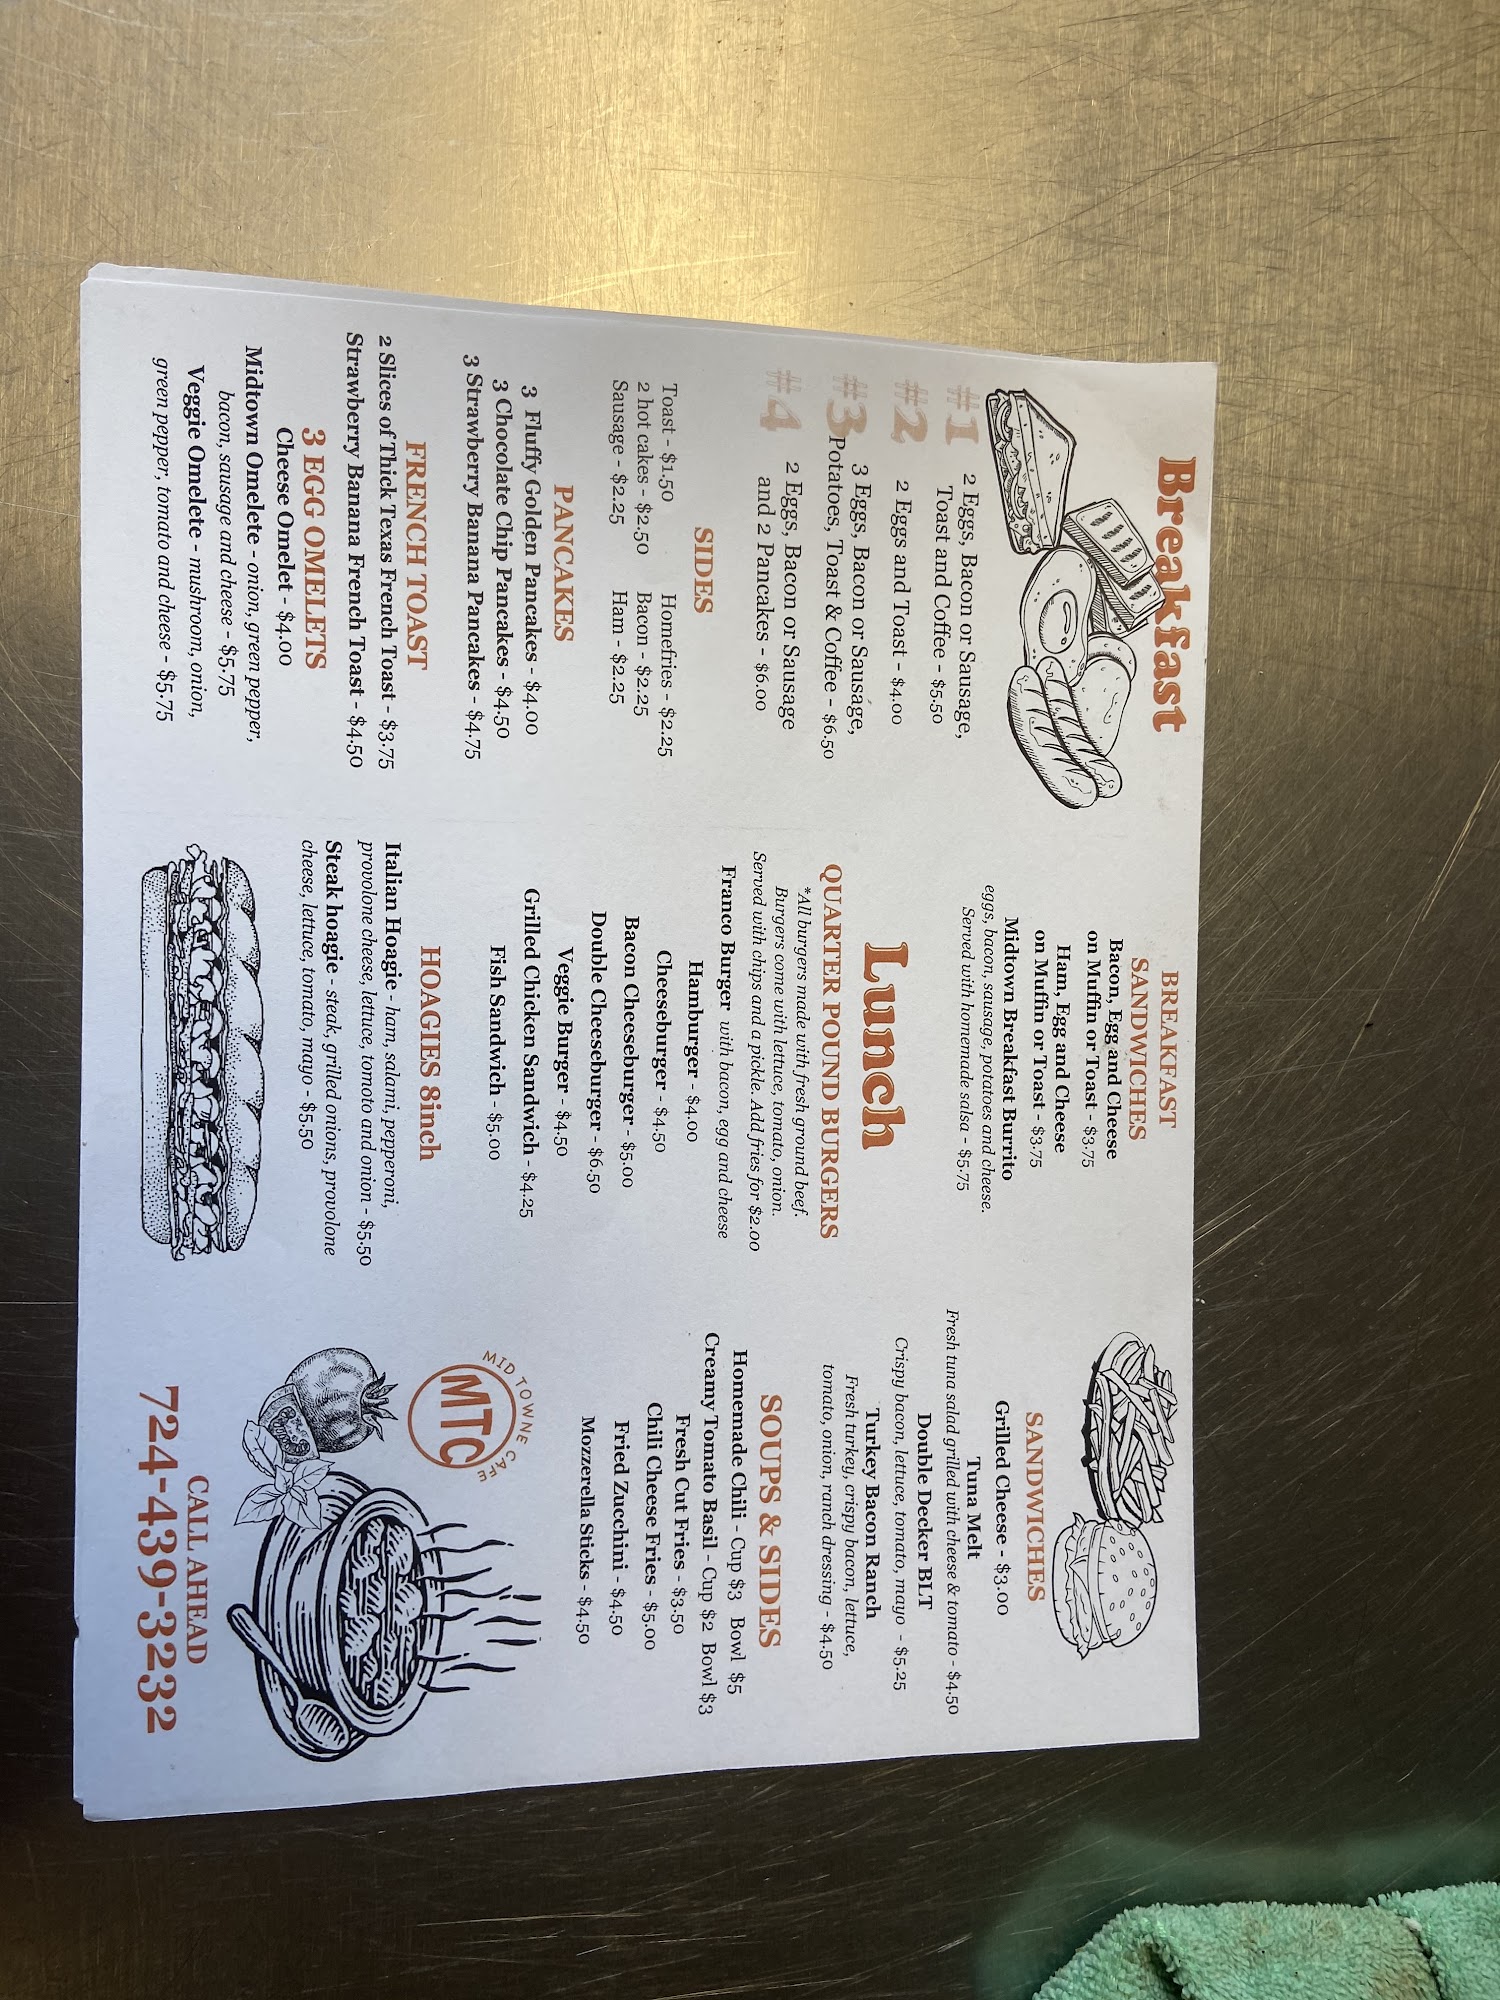 Breakfast
#1 2 Eggs, Bacon or Sausage,
Toast and Coffee - $5.50
#2 2 Eggs and Toast - $4.00
#3 3 Eggs, Bacon or Sausage,
Potatoes, Toast & Coffee - $6.50
#4 2 Eggs, Bacon or Sausage
and 2 Pancakes - $6.00
SIDES
Toast - $1.50 Homefries - $2.25
2 hot cakes - $2.50 Bacon - $2.25
Sausage - $2.25 Ham - $2.25
PANCAKES
3 Fluffy Golden Pancakes - $4.00
3 Chocolate Chip Pancakes - $4.50
3 Strawberry Banana Pancakes - $4.75
FRENCH TOAST
2 Slices of Thick Texas French Toast - $3.75
Strawberry Banana French Toast - $4.50
3 EGG OMELETS
Cheese Omelet - $4.00
Midtown Omelete - onion, green pepper,
bacon, sausage and cheese - $5.75
Veggie Omelete - mushroom, onion,
green pepper, tomato and cheese - $5.75
BREAKFAST
SANDWICHES
Bacon, Egg and Cheese
on Muffin or Toast - $3.75
Ham, Egg and Cheese
on Muffin or Toast - $3.75
Midtown Breakfast Burrito
eggs, bacon, sausage, potatoes and cheese.
Served with homemade salsa - $5.75
Lunch
QUARTER POUND BURGERS
*All burgers made with fresh ground beef.
Burgers come with lettuce, tomato, onion.
Served with chips and a pickle. Add fries for $2.00
Franco Burger with bacon, egg and cheese
Hamburger - $4.00
Cheeseburger - $4.50
Bacon Cheeseburger - $5.00
Double Cheeseburger - $6.50
Veggie Burger - $4.50
Grilled Chicken Sandwich - $4.25
Fish Sandwich - $5.00
HOAGIES 8inch
Italian Hoagie - ham, salami, pepperoni,
provolone cheese, lettuce, tomoto and onion - $5.50
Steak hoagie - steak, grilled onions, provolone
cheese, lettuce, tomato, mayo - $5.50
SANDWICHES
Grilled Cheese - $3.00
Tuna Melt
Fresh tuna salad grilled with cheese & tomato - $4.50
Double Decker BLT
Crispy bacon, lettuce, tomato, mayo - $5.25
Turkey Bacon Ranch
Fresh turkey, crispy bacon, lettuce,
tomato, onion, ranch dressing - $4.50
SOUPS & SIDES
Homemade Chili - Cup $3 Bowl $5
Creamy Tomato Basil - Cup $2 Bowl $3
Fresh Cut Fries - $3.50
Chili Cheese Fries - $5.00
Fried Zucchini - $4.50
Mozzerella Sticks - $4.50
MID TOWNE CAFE
MTC
CALL AHEAD
724-439-3232